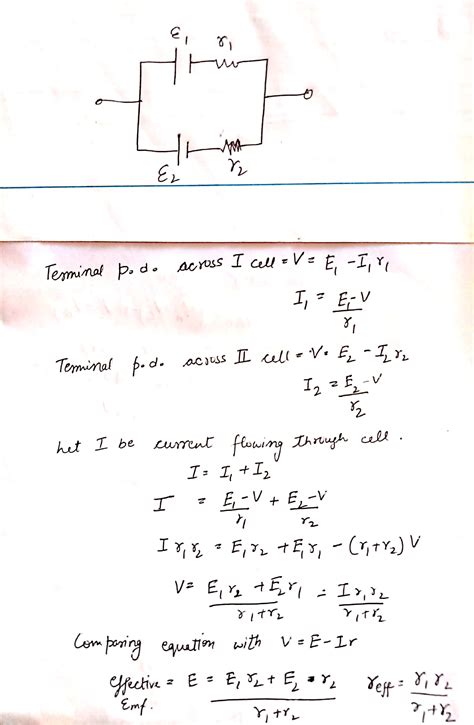 ε₁ r₁
ε₂ r₂
Terminal p.d. across I cell = V = E₁ - I₁ r₁
I₁ = (E₁-V)/r₁
Terminal p.d. across II cell = V = E₂ - I₂ r₂
I₂ = (E₂-V)/r₂
Let I be current flowing through cell.
I = I₁ + I₂
I = (E₁-V)/r₁ + (E₂-V)/r₂
I r₁ r₂ = E₁ r₂ + E₁ r₁ - (r₁+r₂) V
V = (E₁ r₂ + E₂ r₁)/(r₁+r₂) - (I r₁ r₂)/(r₁+r₂)
Comparing equation with V = E - Ir
effective = E = (E₁ r₂ + E₂ r₂)/(r₁+r₂) r eff = (r₁ r₂)/(r₁+r₂)
Emf.